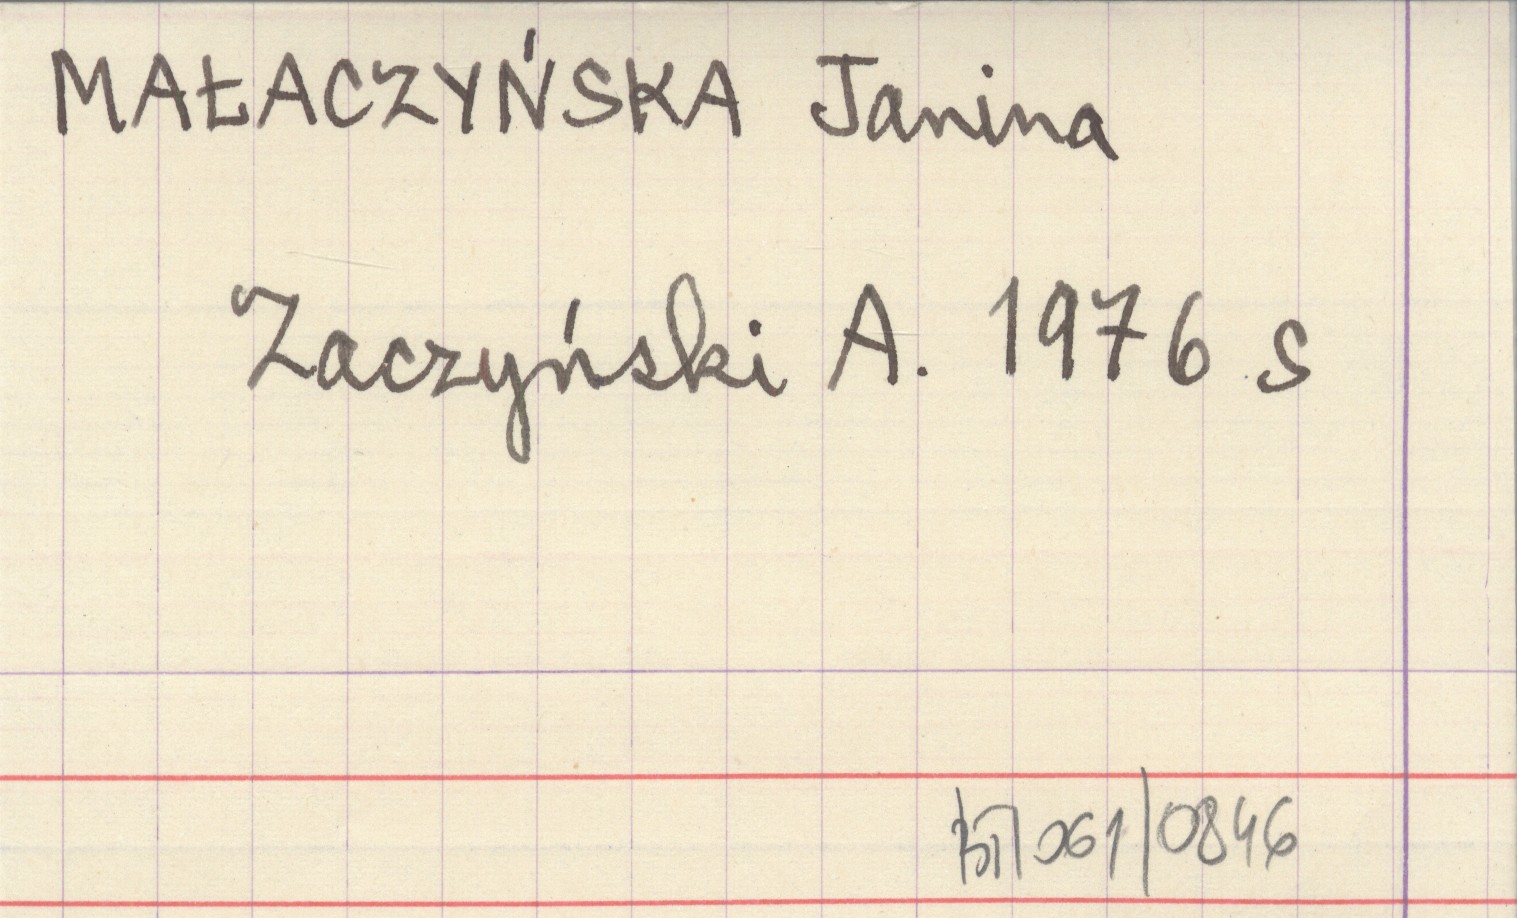 MAŁACZYŃSKA Janina
Zaczyński A. 1976 s
061/0846